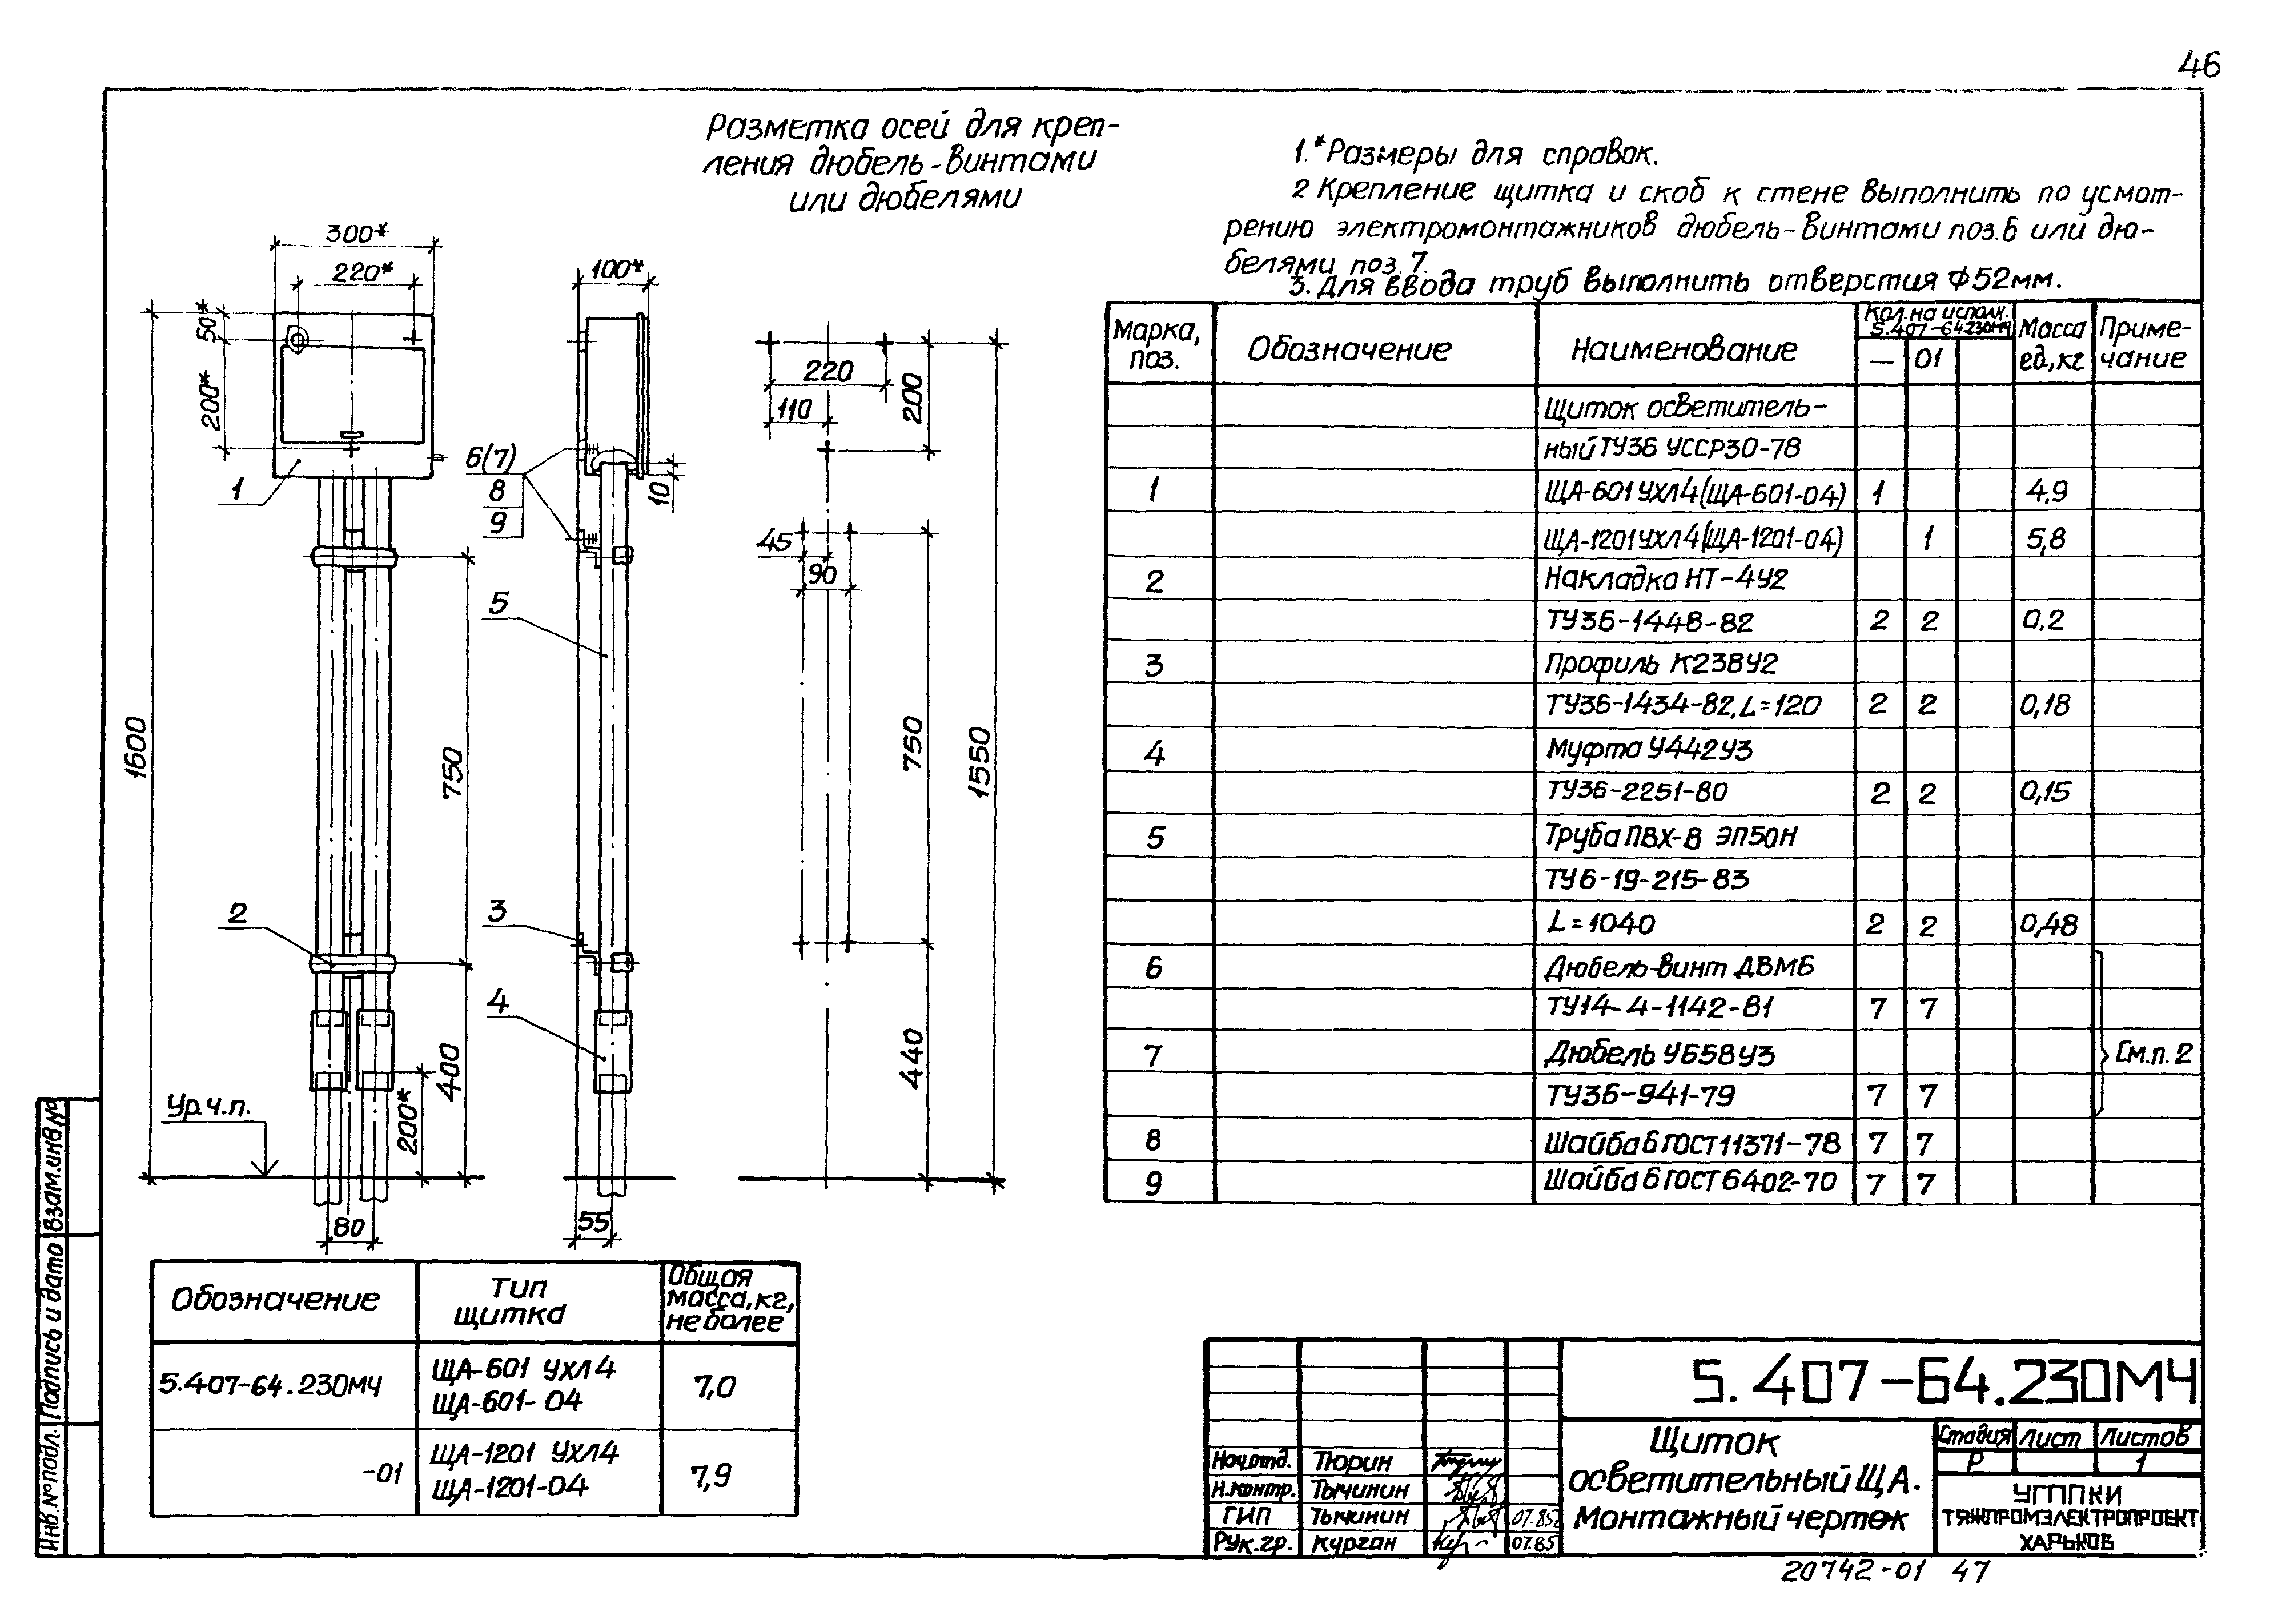 46
Разметка осей для креп-
ления дюбель-винтами
или дюбелями
1.*Размеры для справок.
2 Крепление щитка и скоб к стене выполнить по усмот-
рению электромонтажников дюбель-винтами поз.6 или дю-
белями поз.7.
3. Для ввода труб выполнить отверстия Ф52мм.
300*
220*
50*
200*
1600
1
2
750
400
200*
Ур.ч.п.
80
100*
6(7)
8
9
10
5
3
4
55
220
110
200
45
90
750
1550
440
Марка, поз.
Обозначение
Наименование
Кол. на исполн. 5.407-64.230МЧ
— 01
Масса ед.,кг
Приме-чание
Щиток осветитель-
ный ТУ36 УССР30-78
1 ЩА-601 УХЛ4 (ЩА-601-04) 1 4,9
ЩА-1201УХЛ4(ЩА-1201-04) 1 5,8
2 Накладка НТ-4У2
ТУ36-1448-82 2 2 0,2
3 Профиль К238У2
ТУ36-1434-82, L=120 2 2 0,18
4 Муфта У442У3
ТУ36-2251-80 2 2 0,15
5 Труба ПВХ-В ЭП50Н
ТУ6-19-215-83
L=1040 2 2 0,48
6 Дюбель-винт ДВМ6
ТУ14-4-1142-81 7 7
7 Дюбель У658У3 См.п.2
ТУ36-941-79 7 7
8 Шайба 6 ГОСТ 11371-78 7 7
9 Шайба 6 ГОСТ 6402-70 7 7
Обозначение
Тип щитка
Общая масса, кг, не более
5.407-64.230МЧ
ЩА-601 УХЛ4
ЩА-601-04
7,0
-01
ЩА-1201 УХЛ4
ЩА-1201-04
7,9
5.407-64.230МЧ
Щиток
осветительный ЩА.
Монтажный чертеж
Стадия Лист Листов
Р 1
УГППКИ
ТЯЖПРОМЭЛЕКТРОПРОЕКТ
ХАРЬКОВ
Нач.отд. Тюрин
Н.контр. Тычинин
ГИП Тычинин 07.85
Рук.гр. Курган 07.85
Инв.№ подл. Подпись и дата Взам.инв.№
20742-01 47